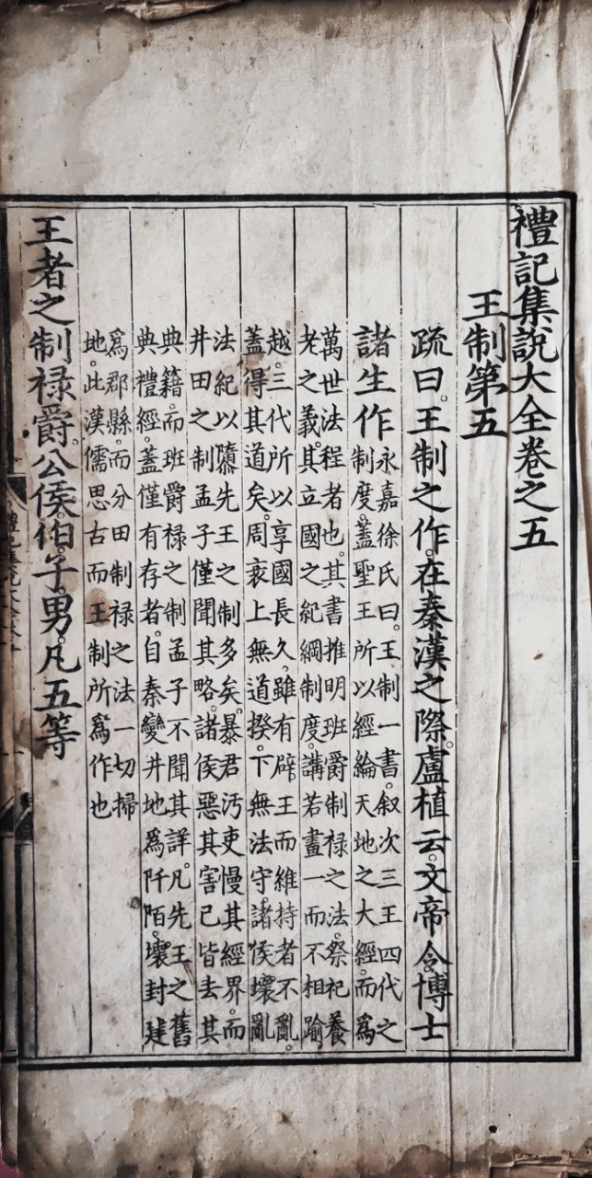 禮記集説大全卷之五
王制第五
疏曰。王制之作。在秦漢之際。盧植云。文帝令博士
諸生作
永嘉徐氏曰。王制一書。叙次三王四代之
制度。蓋聖王所以經綸天地之大經。而爲
萬世法程者也。其書推明班爵制禄之法。祭祀養
老之義。其立國之紀綱制度。講若畫一而不相踰
越。三代所以享國長久。雖有辟王而維持者不亂。
蓋得其道矣。周衰上無道揆。下無法守。諸侯壞亂
法紀以隳先王之制多矣。暴君汚吏慢其經界。而
井田之制孟子僅聞其略。諸侯惡其害己皆去其
典籍。而班爵禄之制孟子不聞其詳。凡先王之舊
典禮經。蓋僅有存者。自秦變井地爲阡陌。壞封建
爲郡縣。而分田制禄之法一切掃
地。此漢儒思古而王制所爲作也
王者之制禄爵。公侯。伯。子。男。凡五等